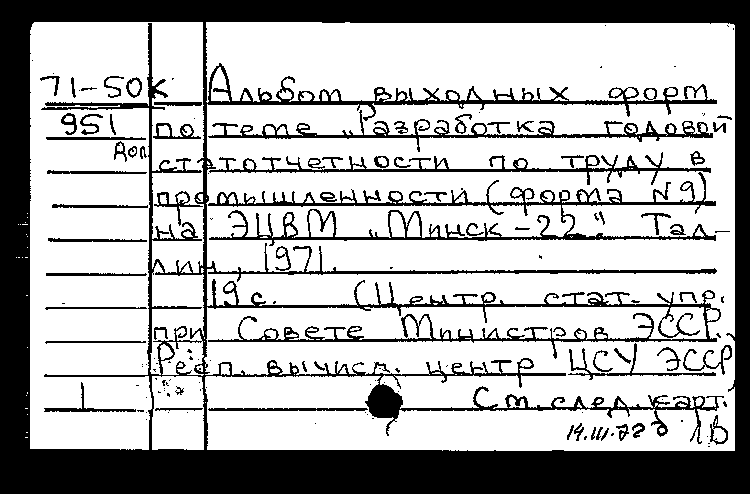 71-50К Альбом выходных форм
951 по теме „Разработка годовой
доп статотчетности по труду в
промышленности (форма N9)
на ЭЦВМ „Минск-22". Тал-
лин, 1971.
19 с. (Центр. стат. упр.
при Совете Министров ЭССР.
Респ. вычисл. центр ЦСУ ЭССР)
1 См. след. карт.
14.III.72
1В